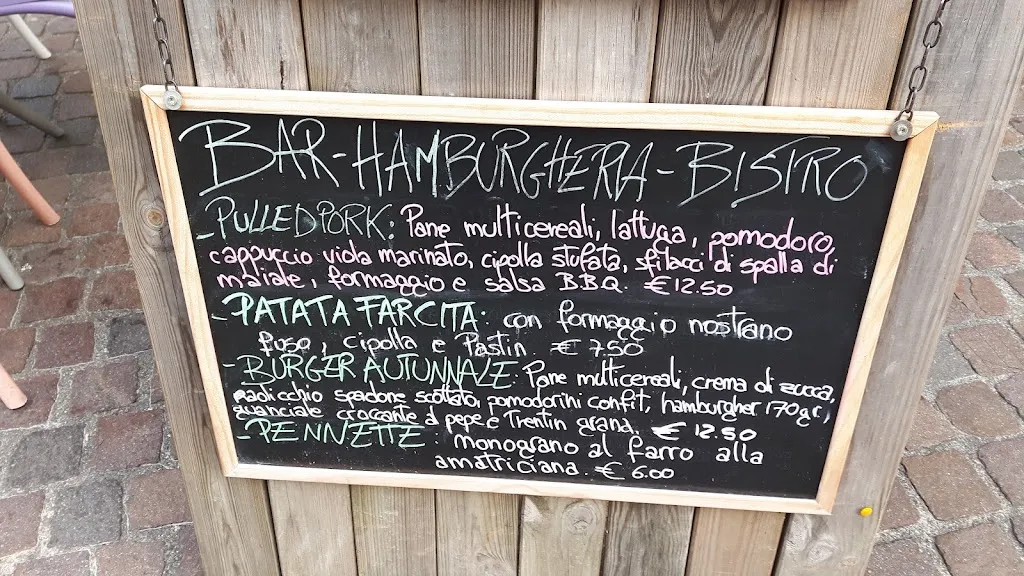 BAR-HAMBURGHERIA-BISTRO
-PULLED PORK: Pane multicereali, lattuga, pomodoro,
cappuccio viola marinato, cipolla stufata, sfilacci di spalla di
maiale, formaggio e salsa B.B.Q. € 12.50
-PATATA FARCITA: con formaggio nostrano
fuso, cipolla e Pastin € 7.50
-BURGER AUTUNNALE: Pane multicereali, crema di zucca,
radicchio spadone scottato, pomodorini confit, hamburgher 170gr,
guanciale croccante al pepe e Trentin grana. € 12.50
-PENNETTE: monograno al farro alla
amatriciana. € 6.00